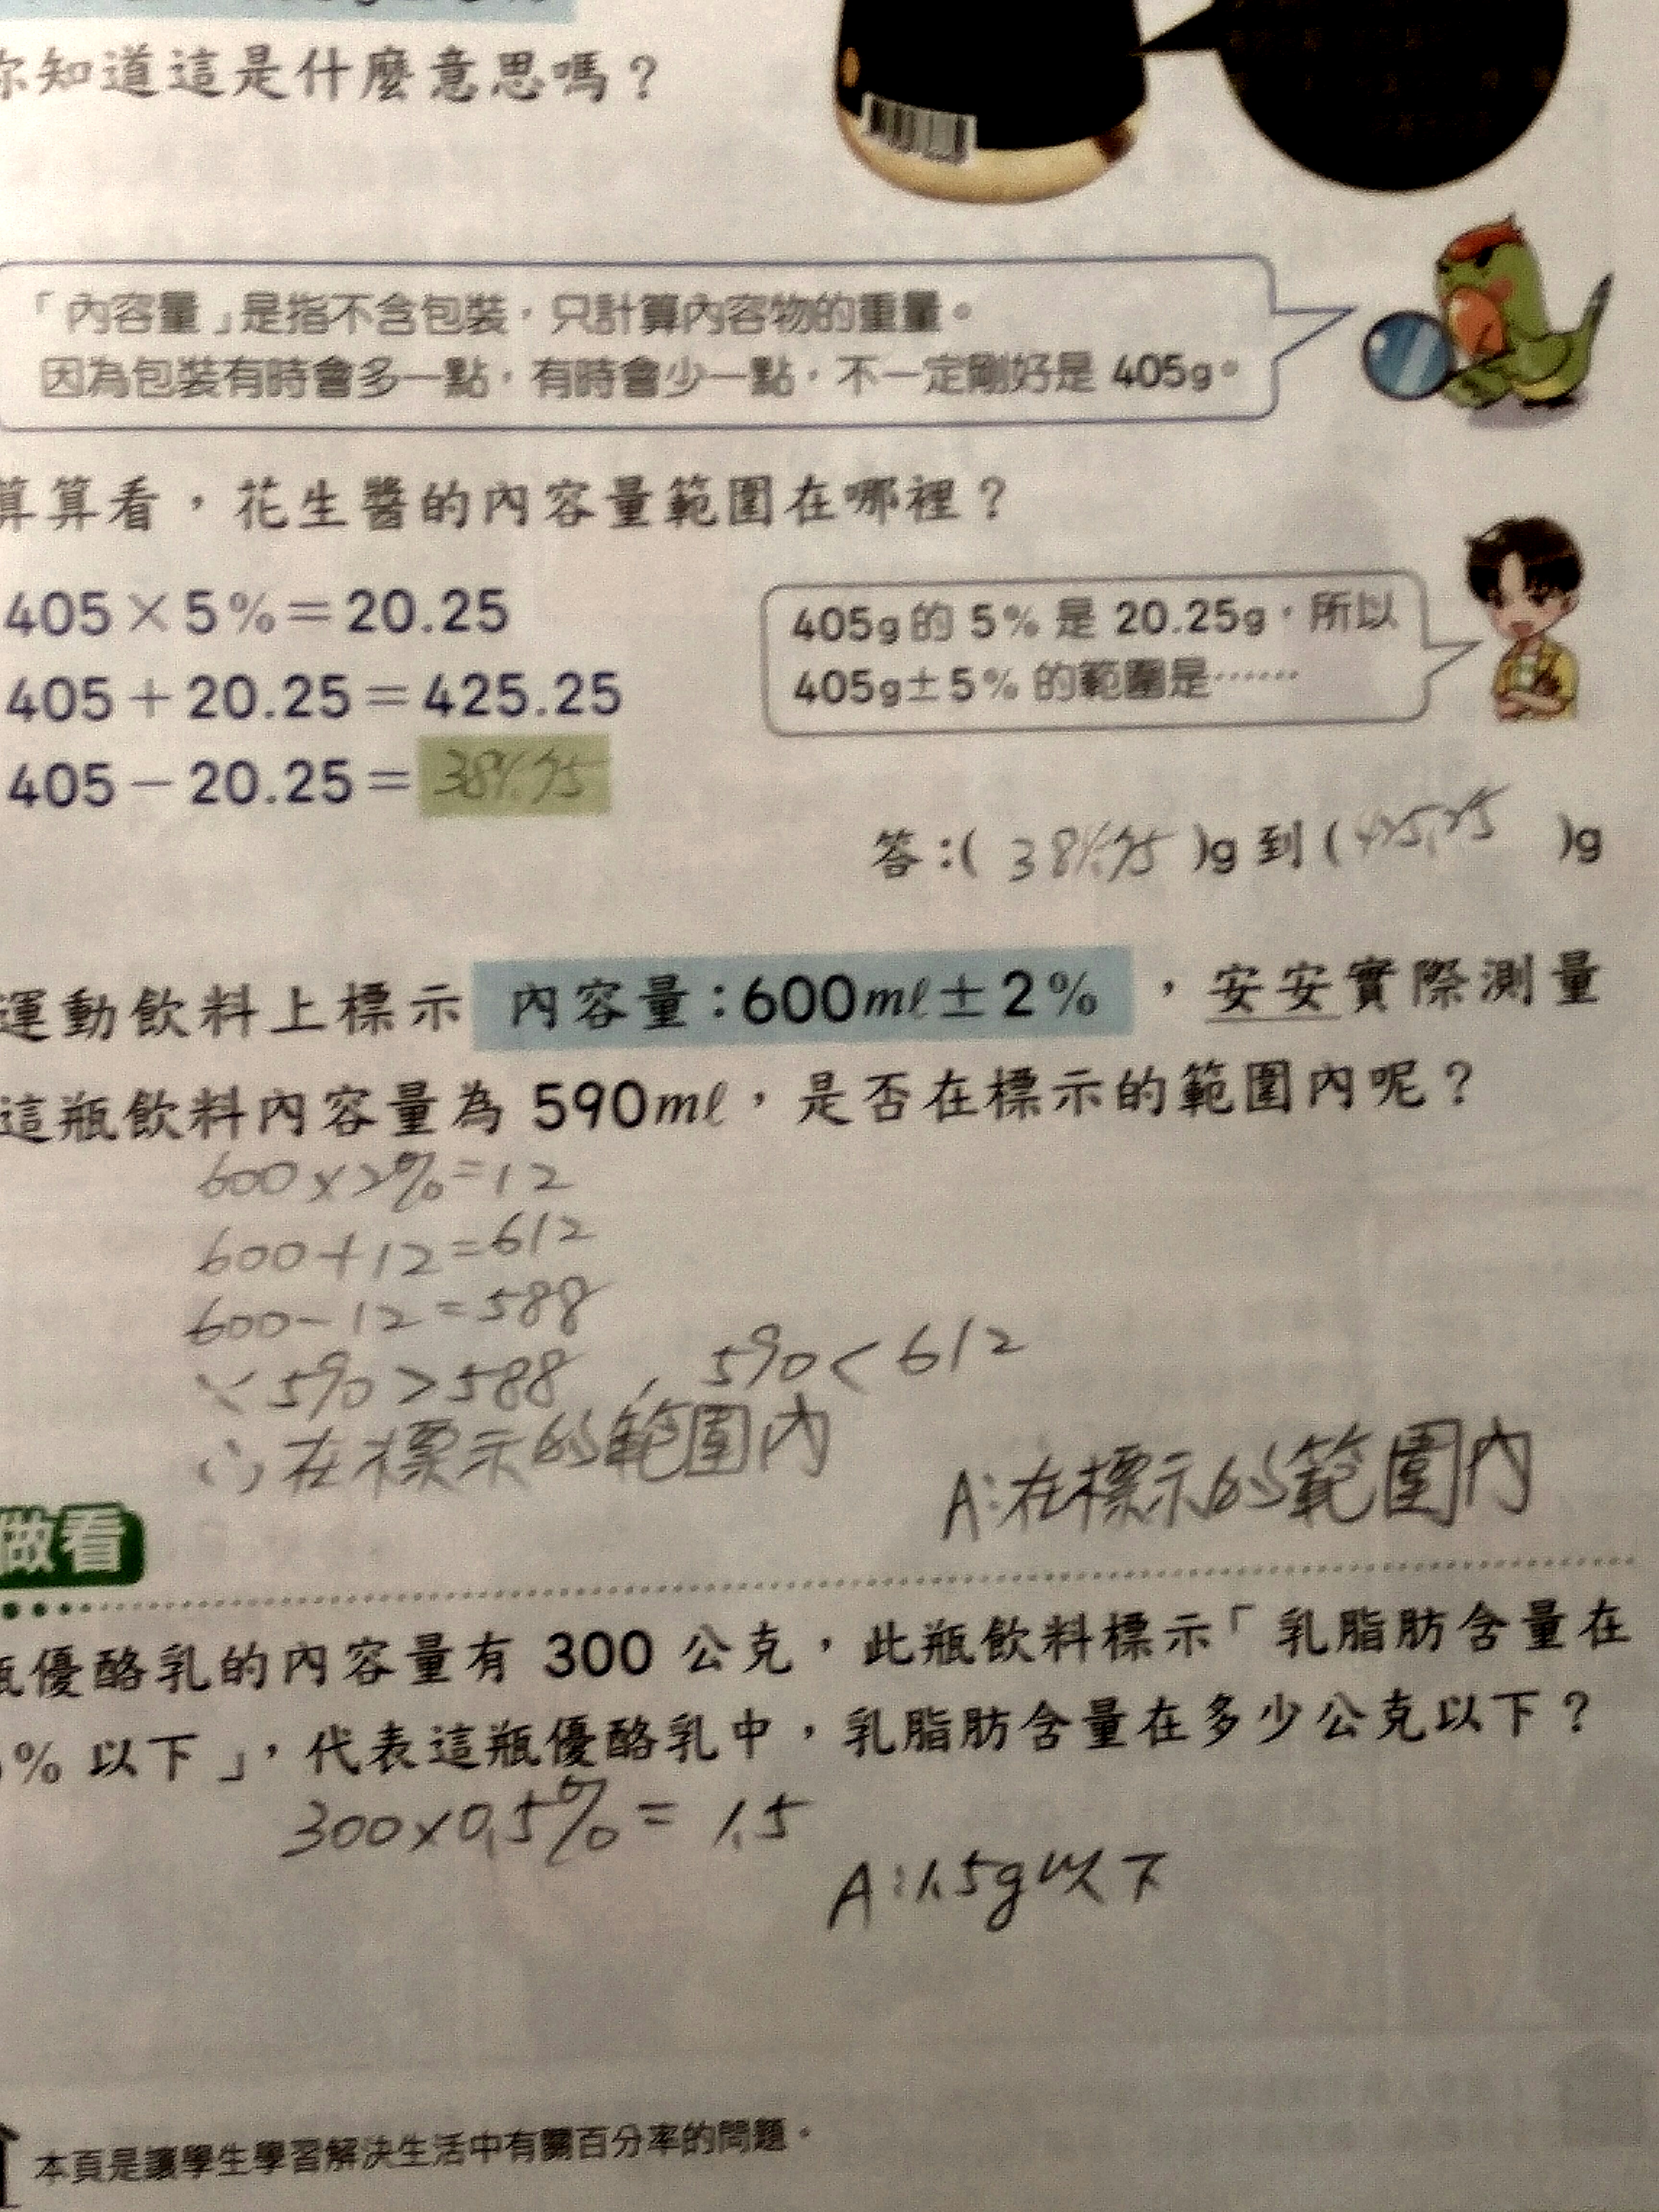 你知道這是什麼意思嗎？
「內容量」是指不含包裝，只計算內容物的重量。
因為包裝有時會多一點，有時會少一點，不一定剛好是 405g。
算算看，花生醬的內容量範圍在哪裡？
405×5%＝20.25
405＋20.25＝425.25
405－20.25＝
405g 的 5% 是 20.25g，所以
405g±5% 的範圍是……
答：( )g 到 ( 425.25 )g
運動飲料上標示 內容量：600mℓ±2% ，安安實際測量
這瓶飲料內容量為 590mℓ，是否在標示的範圍內呢？
600×2%=12
600+12=612
600-12=588
∵590>588 , 590<612
∴在標示的範圍內
A:在標示的範圍內
做看
瓶優酪乳的內容量有 300 公克，此瓶飲料標示「乳脂肪含量在
% 以下」，代表這瓶優酪乳中，乳脂肪含量在多少公克以下？
300×0.5%= 1.5
A:1.5g以下
本頁是讓學生學習解決生活中有關百分率的問題。